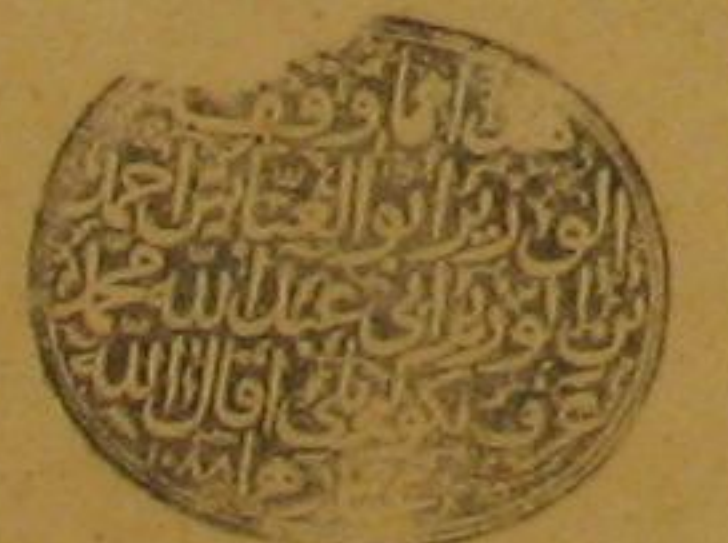 هذا مما وقف
الوزير ابو العباس احمد
بن الوزير ابي عبد الله محمد
عرف بكوبريلي اقال الله
١٠٨٨